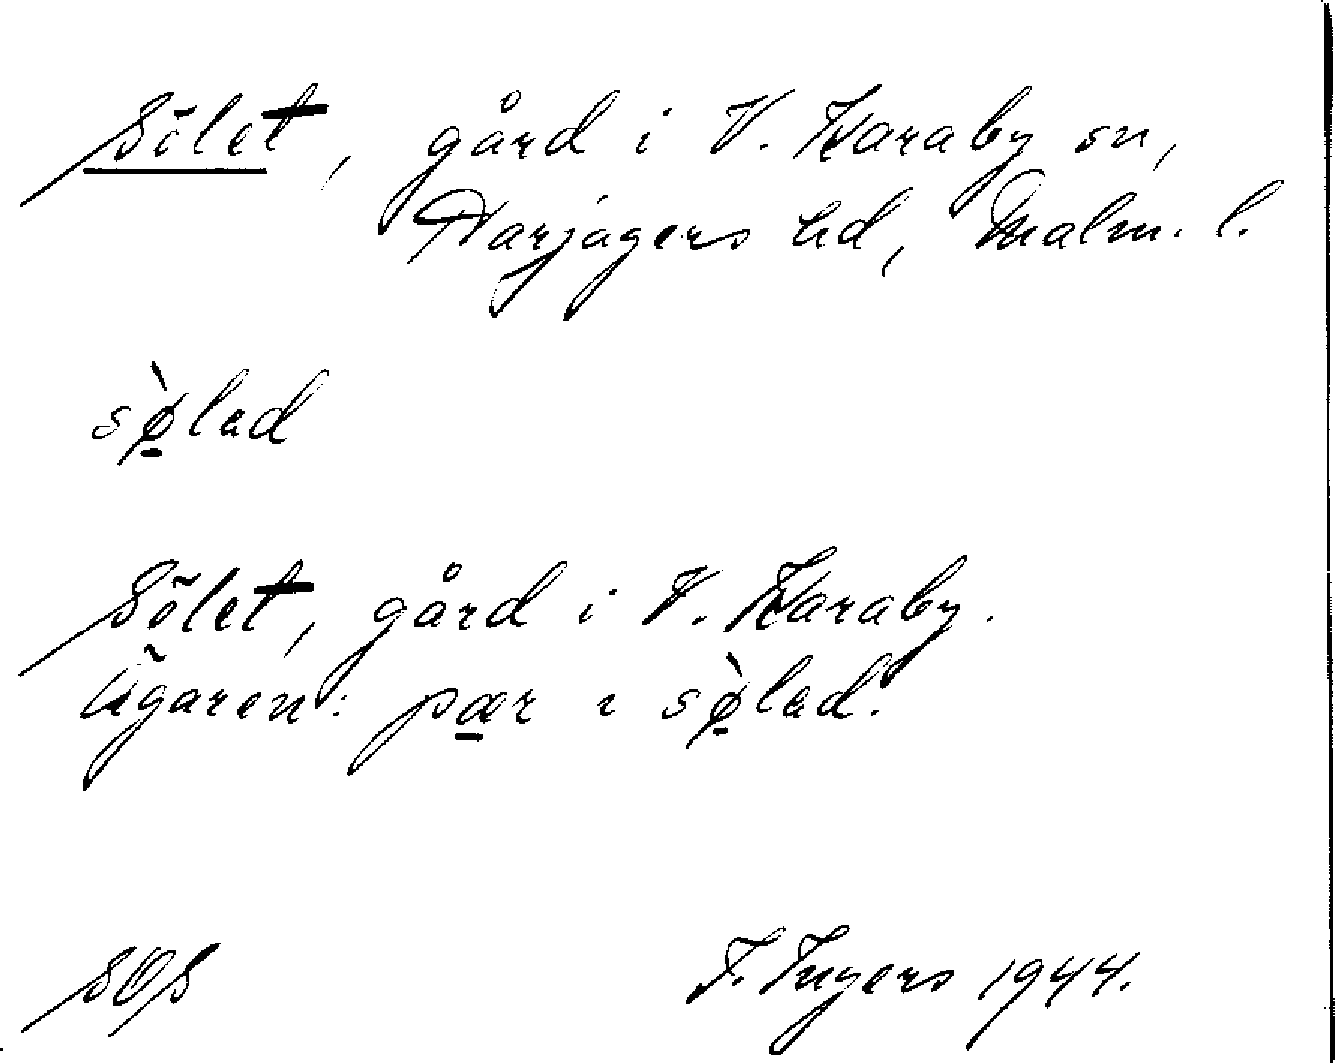 Sölet, gård i V. Karaby sn,
Harjagers hd, Malm. l.
sø̀ləd
Sölet, gård i V. Karaby.
Ägaren: pær i sø̀ləd.
SOS F. Ingers 1944.